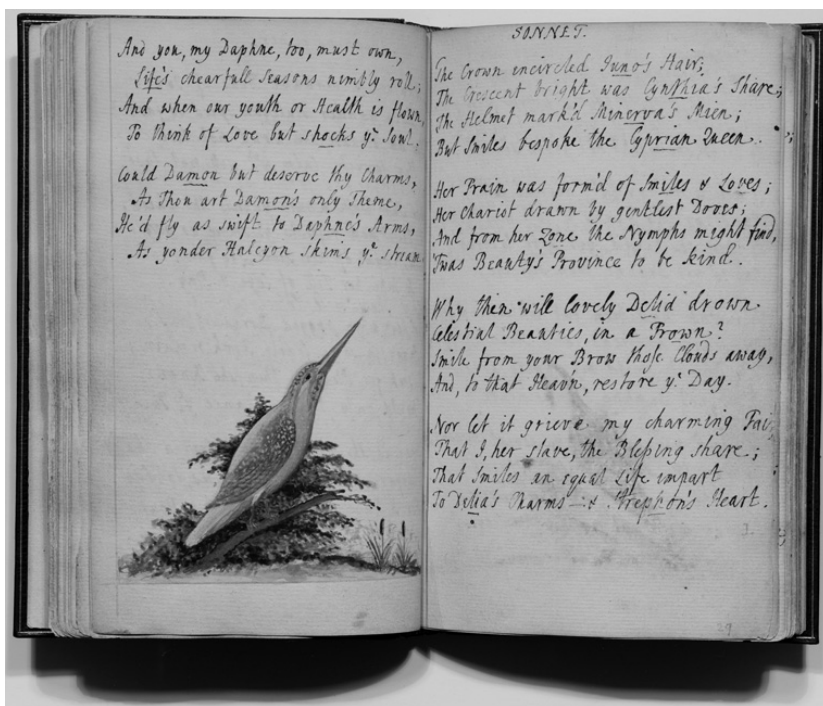 And you, my Daphne, too, must own,
Life's chearfull Seasons nimbly roll;
And when our youth or Health is flown,
To think of Love but shocks yͤ Soul.
Could Damon but deserve thy Charms,
As Thou art Damon's only Theme,
He'd fly as swift to Daphne's Arms,
As yonder Halcyon skims yͤ stream
SONNET.
The Crown encircled Juno's Hair;
The Crescent bright was Cynthia's Share;
The Helmet mark'd Minerva's Mien;
But Smiles bespoke the Cyprian Queen.
Her Train was form'd of Smiles & Loves;
Her Chariot drawn by gentlest Doves;
And from her Zone the Nymphs might find,
'Twas Beauty's Province to be kind.
Why then will lovely Delia drown
Celestial Beauties, in a Frown?
Smile from your Brow those Clouds away,
And, to that Heav'n, restore yͤ Day.
Nor let it grieve my charming Fair
That I, her slave, the Blessing share;
That Smiles an equal Life impart
To Delia's Charms — & Strephon's Heart.
29